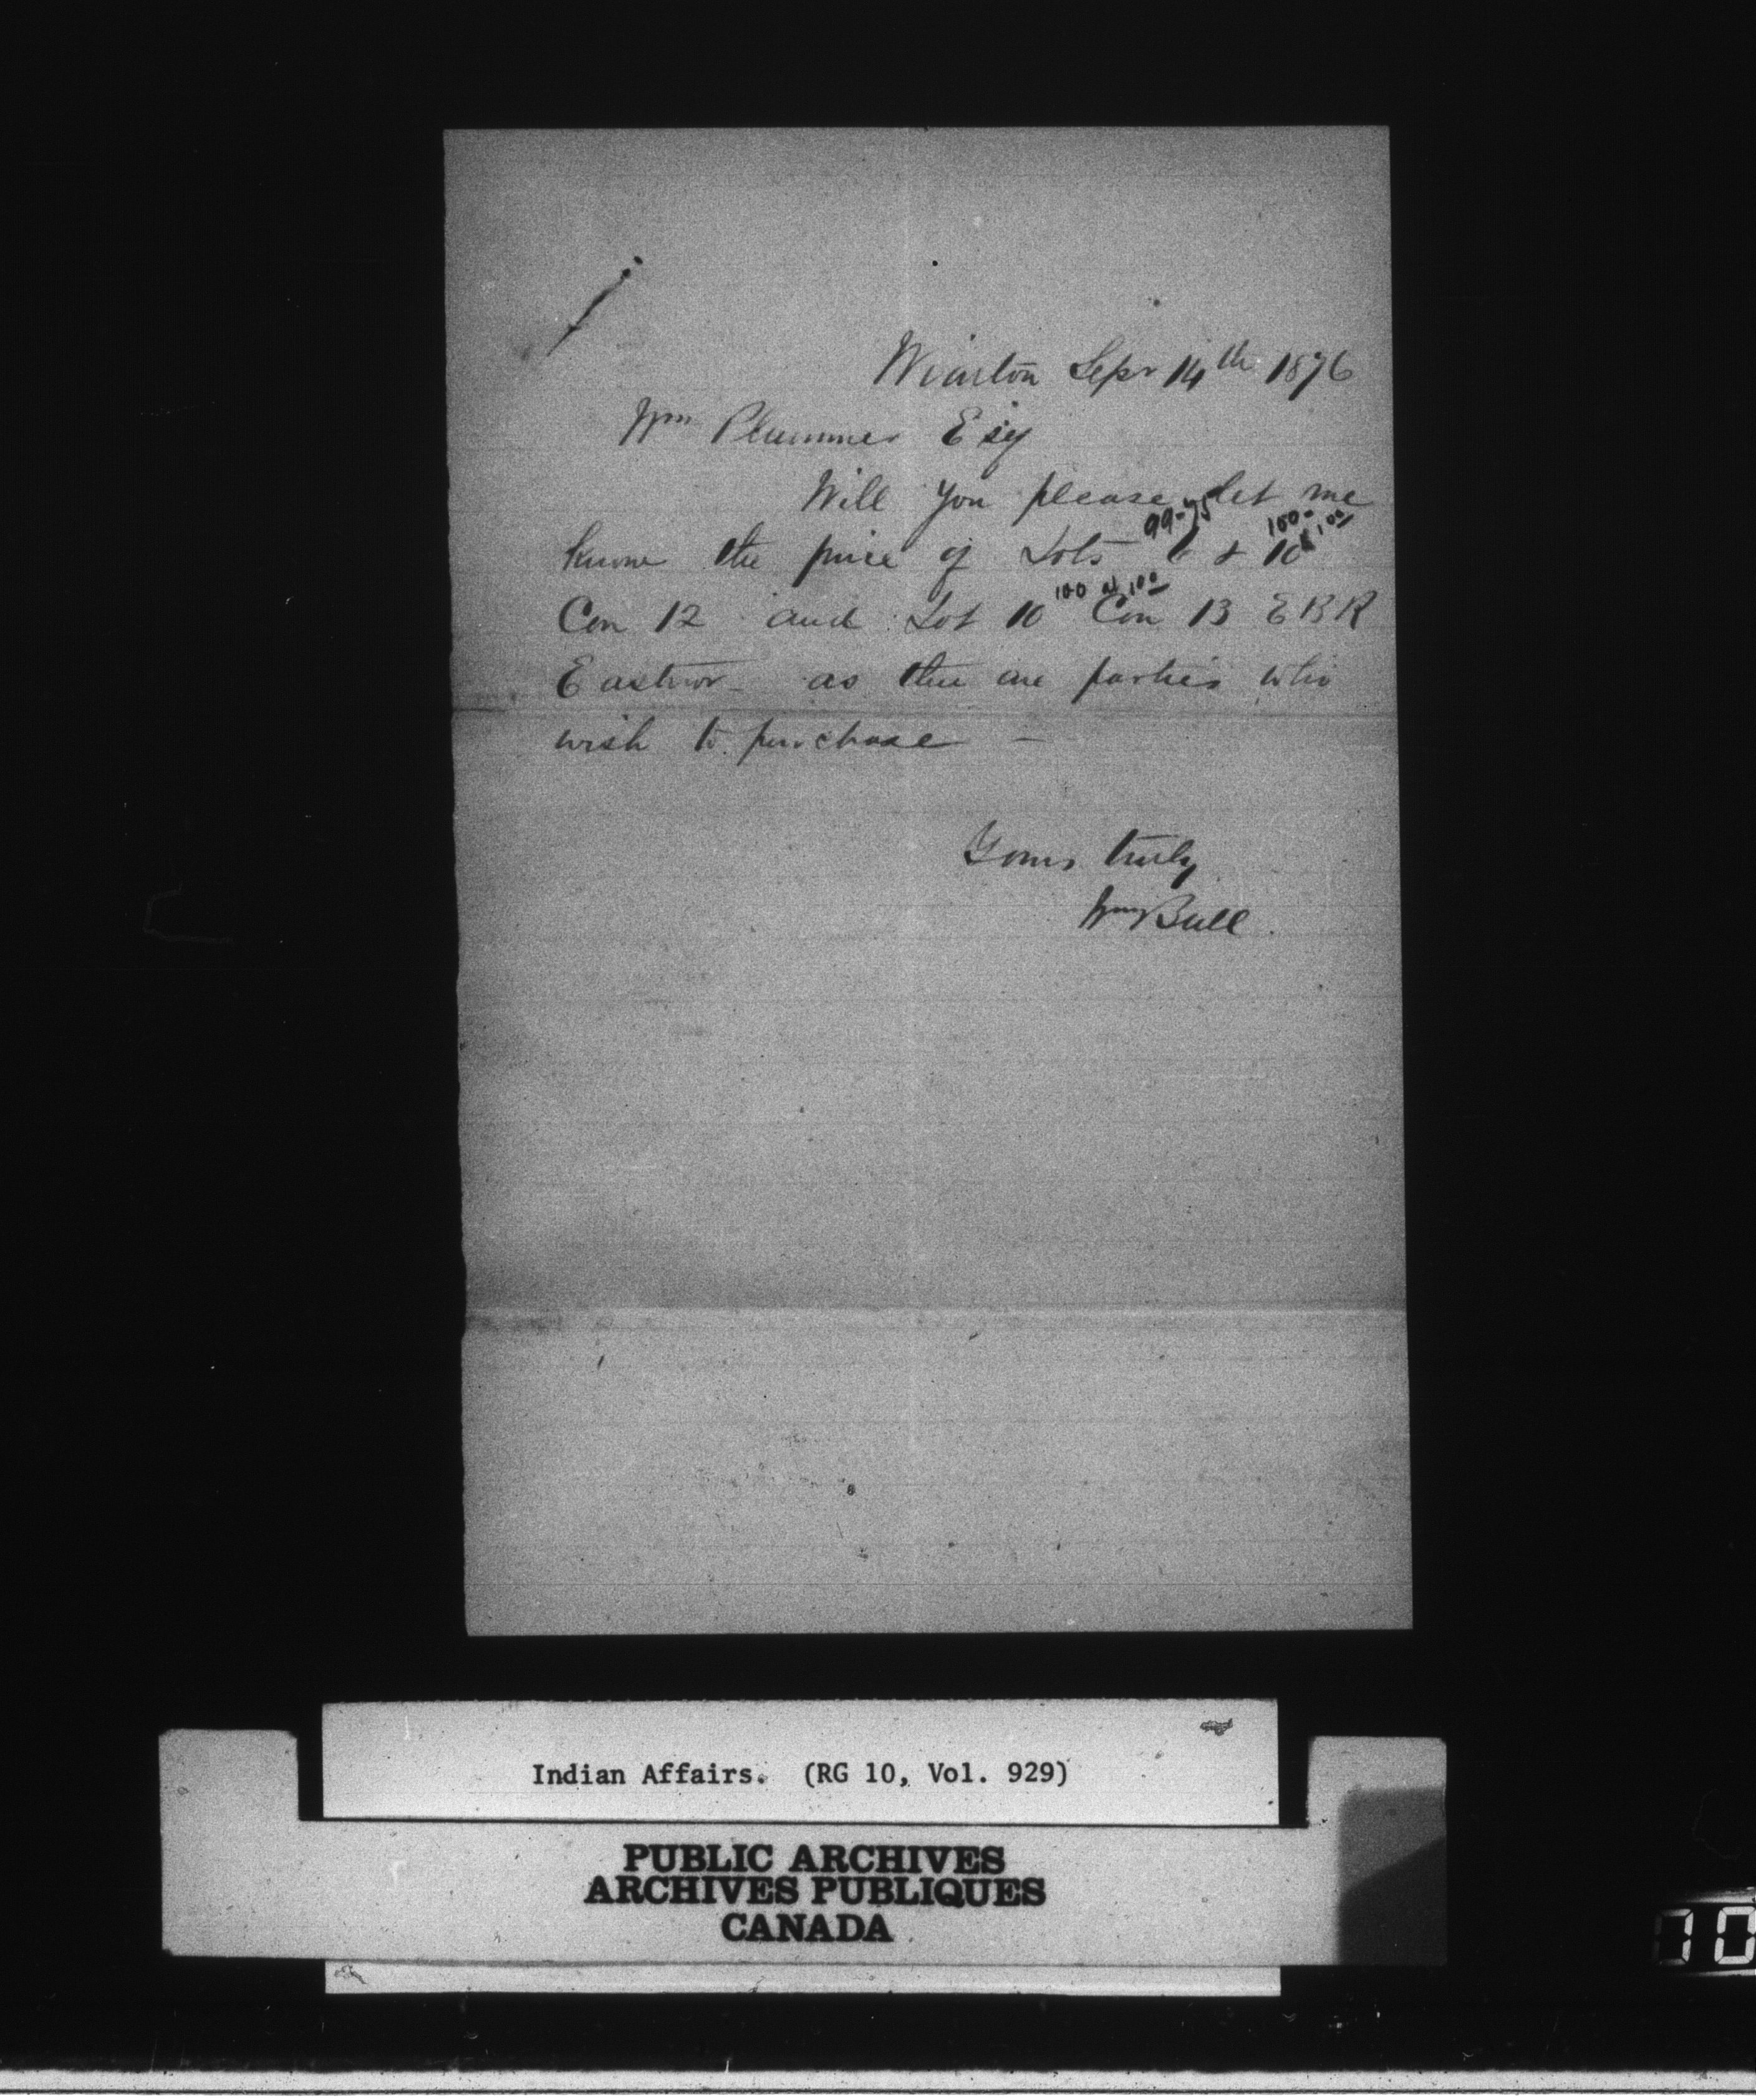 Wiarton Sepr 14th 1876
Wm Plummer Esq
Will you please let me
99-75 100- 1.00
know the price of Lots 6 & 10
100 at 1.00
Con 12 and Lot 10 Con 13 E B R
Eastnor as there are parties who
wish to purchase -
Yours truly
Wm Bull
Indian Affairs. (RG 10, Vol. 929)
PUBLIC ARCHIVES
ARCHIVES PUBLIQUES
CANADA
10